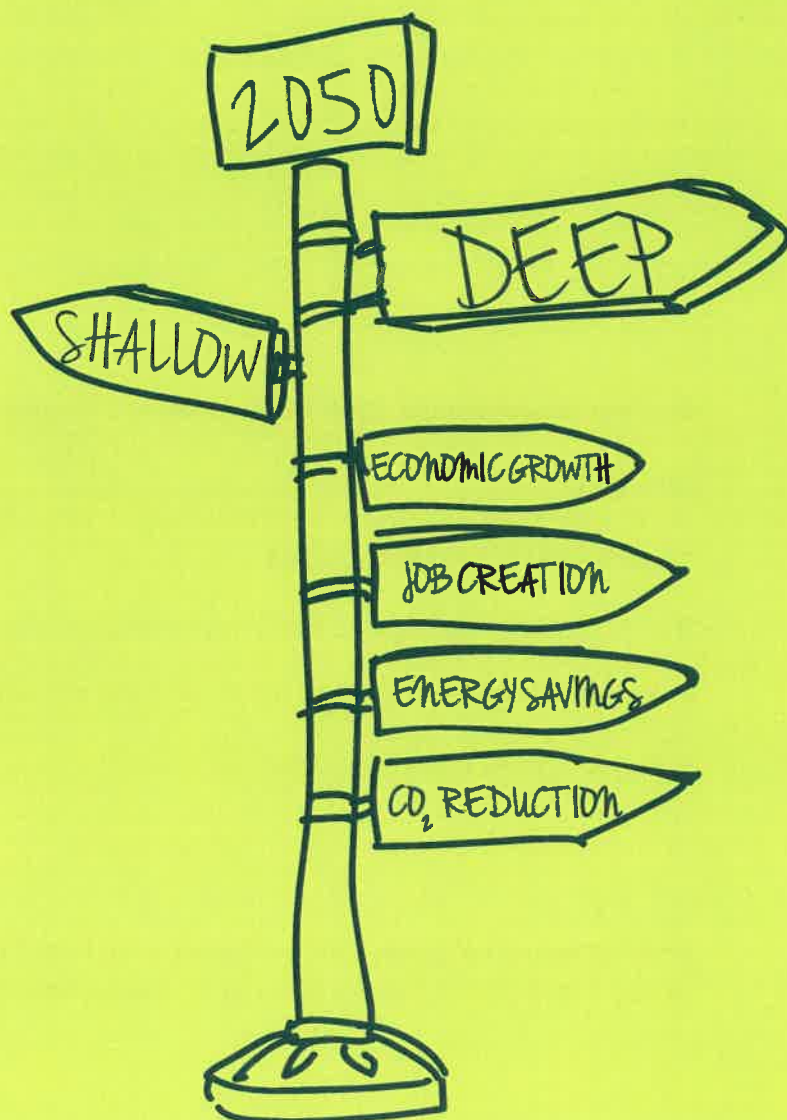 2050
DEEP
SHALLOW
ECONOMIC GROWTH
JOB CREATION
ENERGY SAVINGS
CO₂ REDUCTION